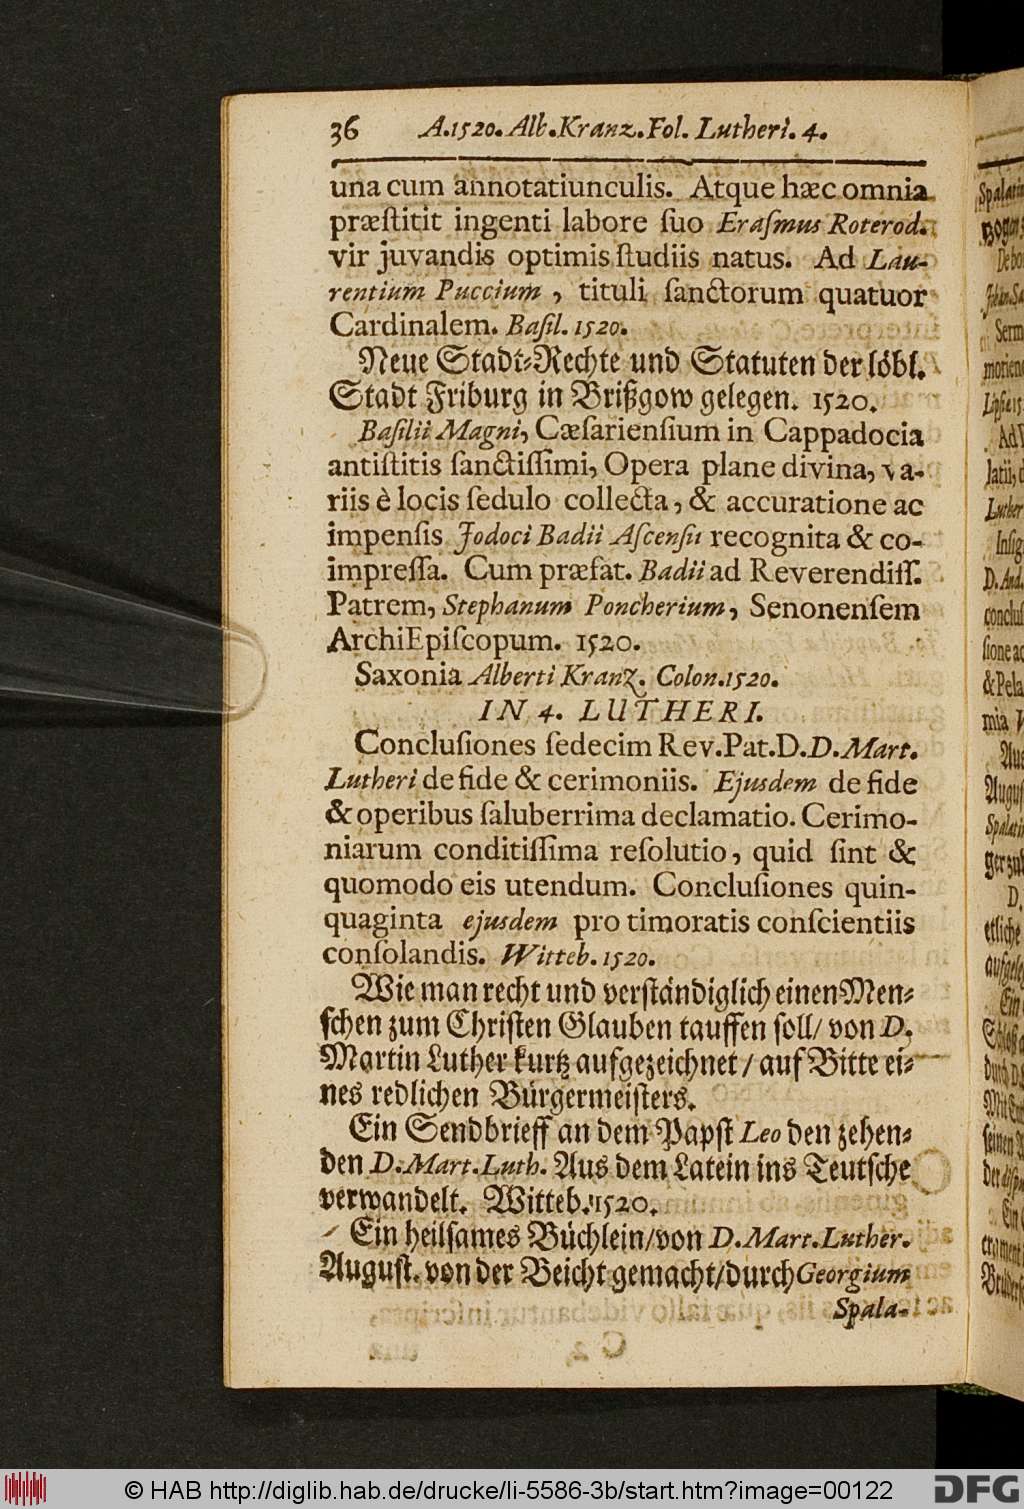 36 A.1520. Alb.Kranz.Fol. Lutheri. 4.
una cum annotatiunculis. Atque hæc omnia
præſtitit ingenti labore ſuo Eraſmus Roterod.
vir juvandis optimis ſtudiis natus. Ad Lau-
rentium Puccium, tituli ſanctorum quatuor
Cardinalem. Baſil. 1520.
Neue Stadt-Rechte und Statuten der löbl.
Stadt Friburg in Brißgow gelegen. 1520.
Baſilii Magni, Cæſarienſium in Cappadocia
antiſtitis ſanctiſſimi, Opera plane divina, va-
riis è locis ſedulo collecta, & accuratione ac
impenſis Jodoci Badii Aſcenſii recognita & co-
impreſſa. Cum præfat. Badii ad Reverendiſſ.
Patrem, Stephanum Poncherium, Senonenſem
ArchiEpiſcopum. 1520.
Saxonia Alberti Kranz. Colon.1520.
IN 4. LUTHERI.
Concluſiones ſedecim Rev.Pat.D.D.Mart.
Lutheri de fide & cerimoniis. Ejusdem de fide
& operibus ſaluberrima declamatio. Cerimo-
niarum conditiſſima reſolutio, quid ſint &
quomodo eis utendum. Concluſiones quin-
quaginta ejusdem pro timoratis conſcientiis
conſolandis. Witteb. 1520.
Wie man recht und verſtändiglich einen Men-
ſchen zum Chriſten Glauben tauffen ſoll/ von D.
Martin Luther kurtz aufgezeichnet / auf Bitte ei-
nes redlichen Bürgermeiſters.
Ein Sendbrieff an dem Papſt Leo den zehen-
den D.Mart.Luth. Aus dem Latein ins Teutſche
verwandelt. Witteb. 1520.
Ein heilſames Büchlein/von D.Mart.Luther.
Auguſt. von der Beicht gemacht/durch Georgium
Spala-
© HAB http://diglib.hab.de/drucke/li-5586-3b/start.htm?image=00122
DFG